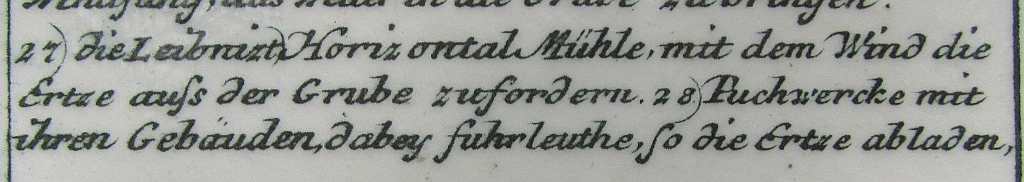 das Wetter in die Grube zu bringen.
27) die Leibnizt, Horizontal Mühle, mit dem Wind die
Ertze aufs der Grube zufordern. 28) Puchwercke mit
ihren Gebäuden, dabey fuhrleuthe, so die Ertze abladen,